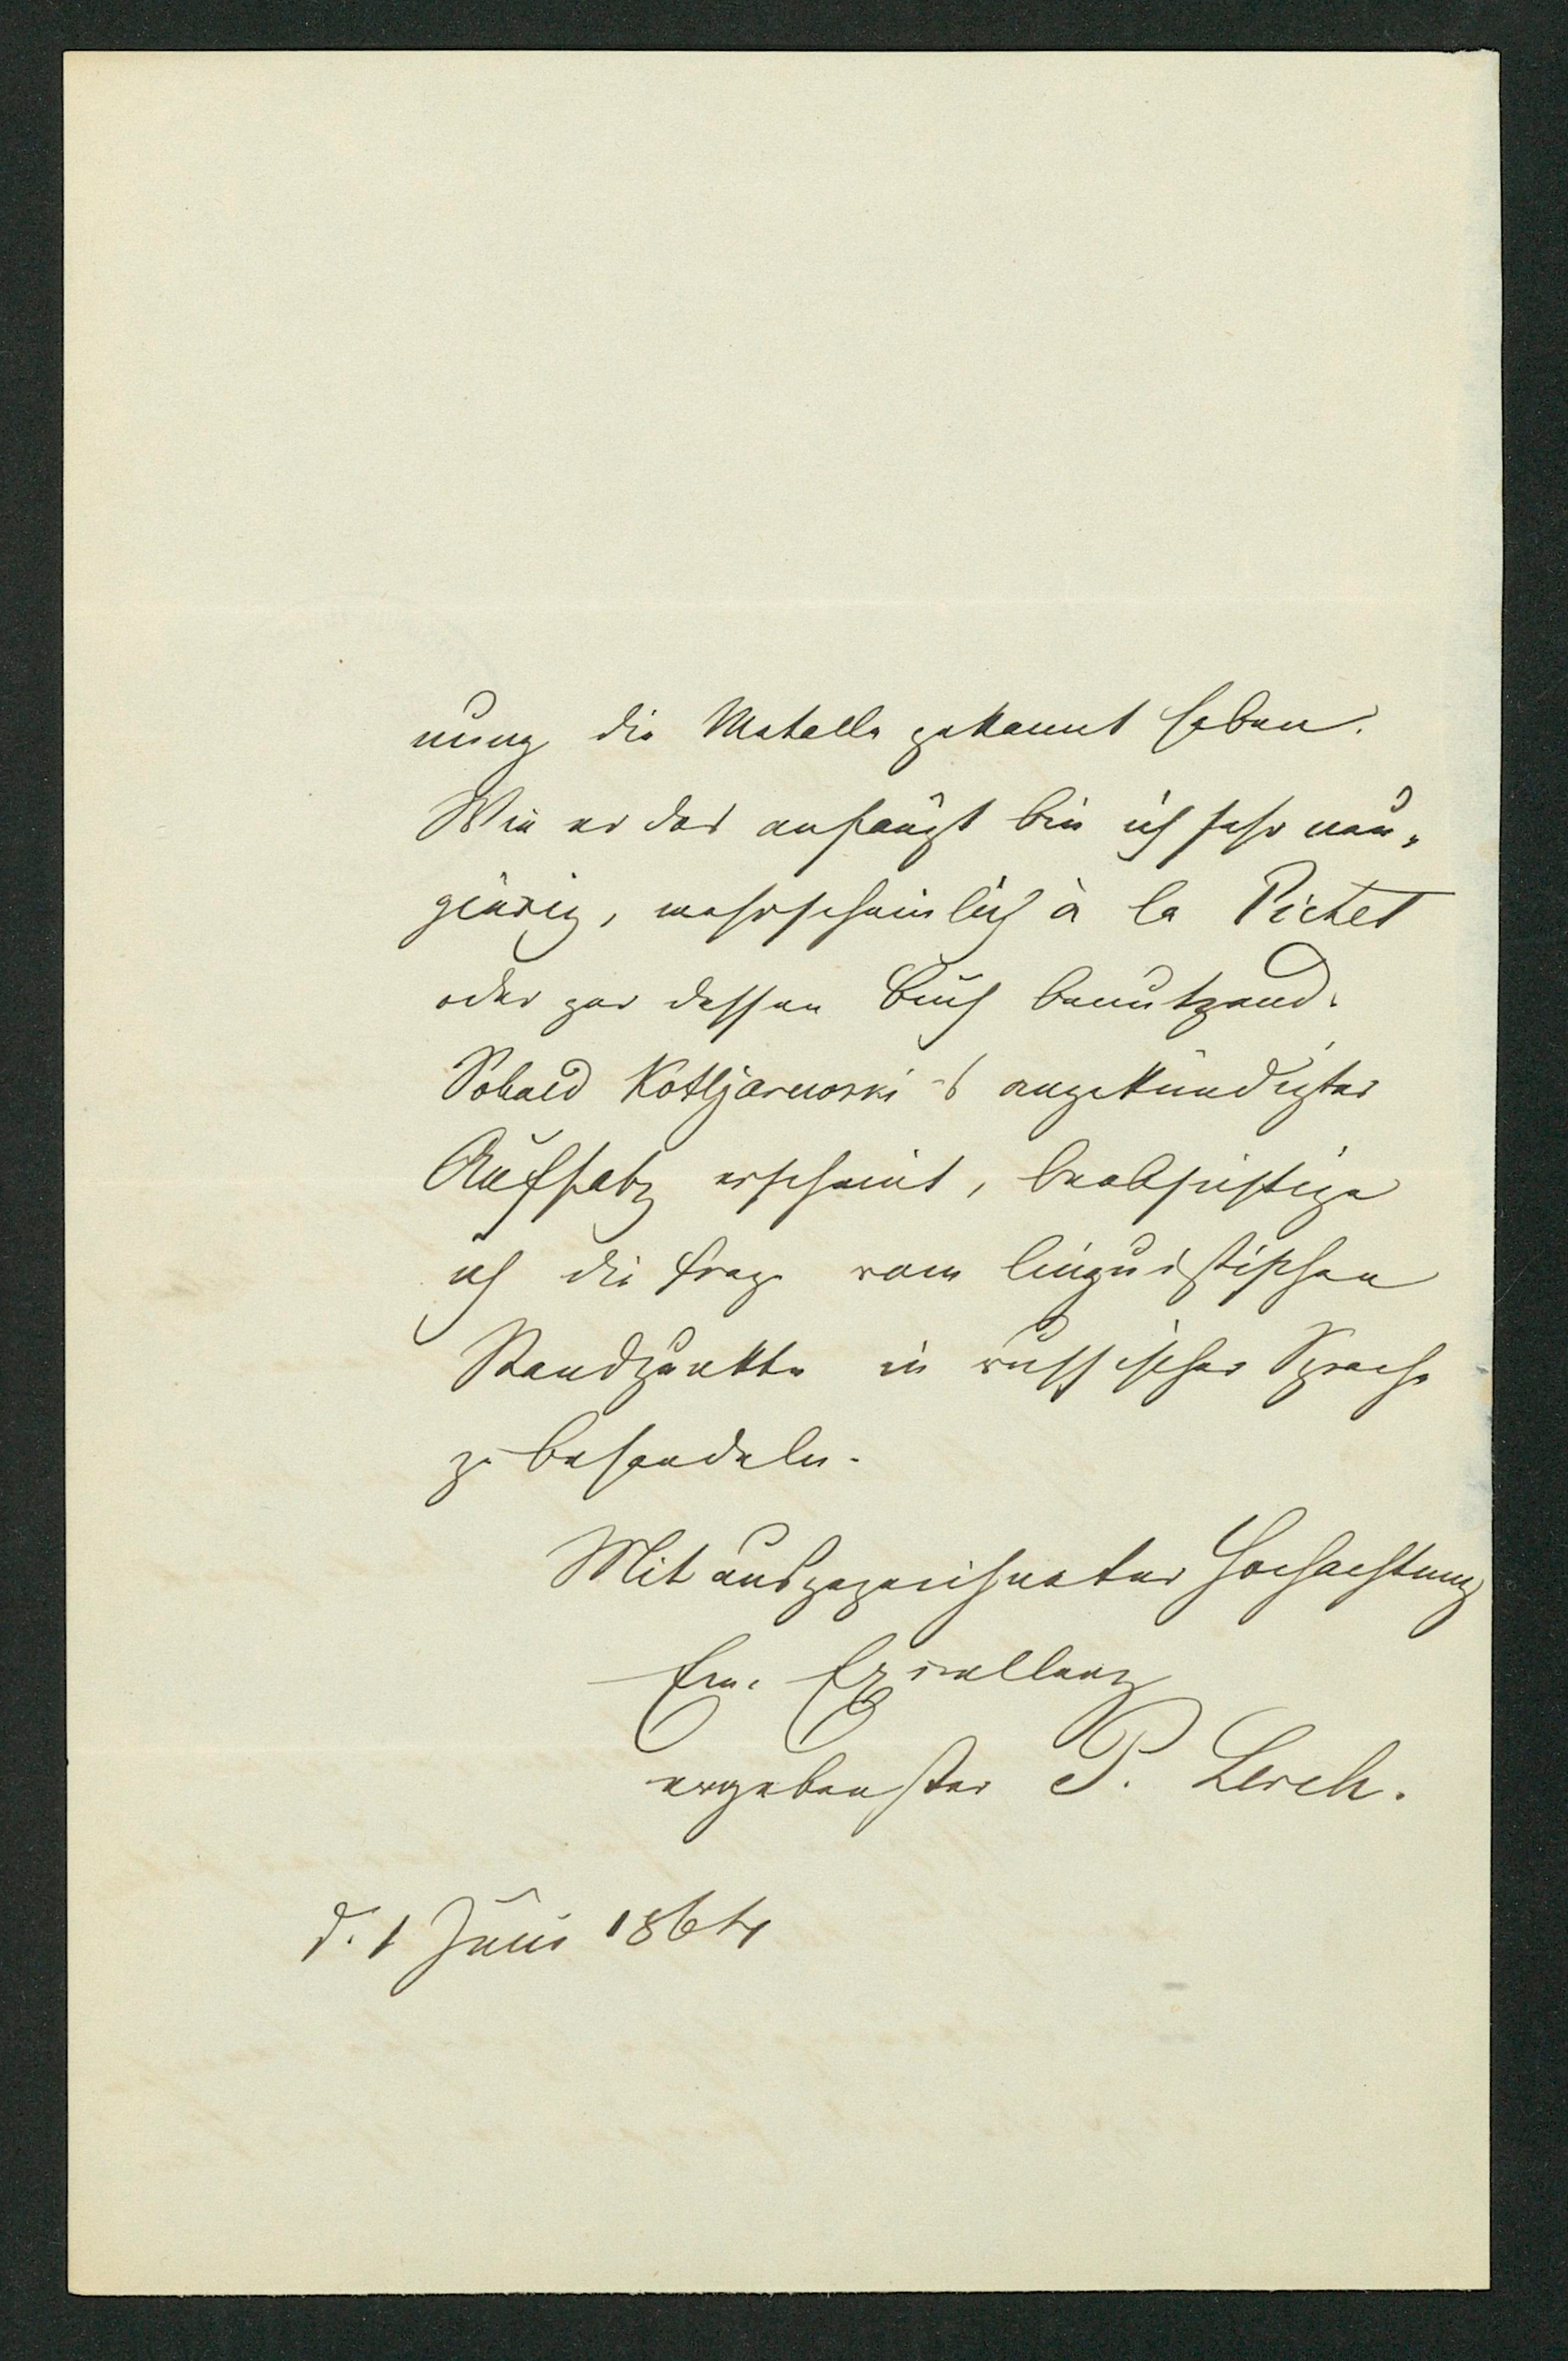 nung die Metalle gekannt haben.
Wie er das anfängt bin ich sehr neu-
gierig, wahrscheinlich à la Pictet
oder gar dessen Buch benutzend.
Sobald Kotljarewski's angekündigter
Aufsatz erscheint, beabsichtige
ich die Frage vom linguistischen
Standpunkte in russischer Sprache
zu behandeln.
Mit ausgezeichneter Hochachtung
Ew. Excellenz
ergebenster P. Lerch.
d. 1 Juni 1864